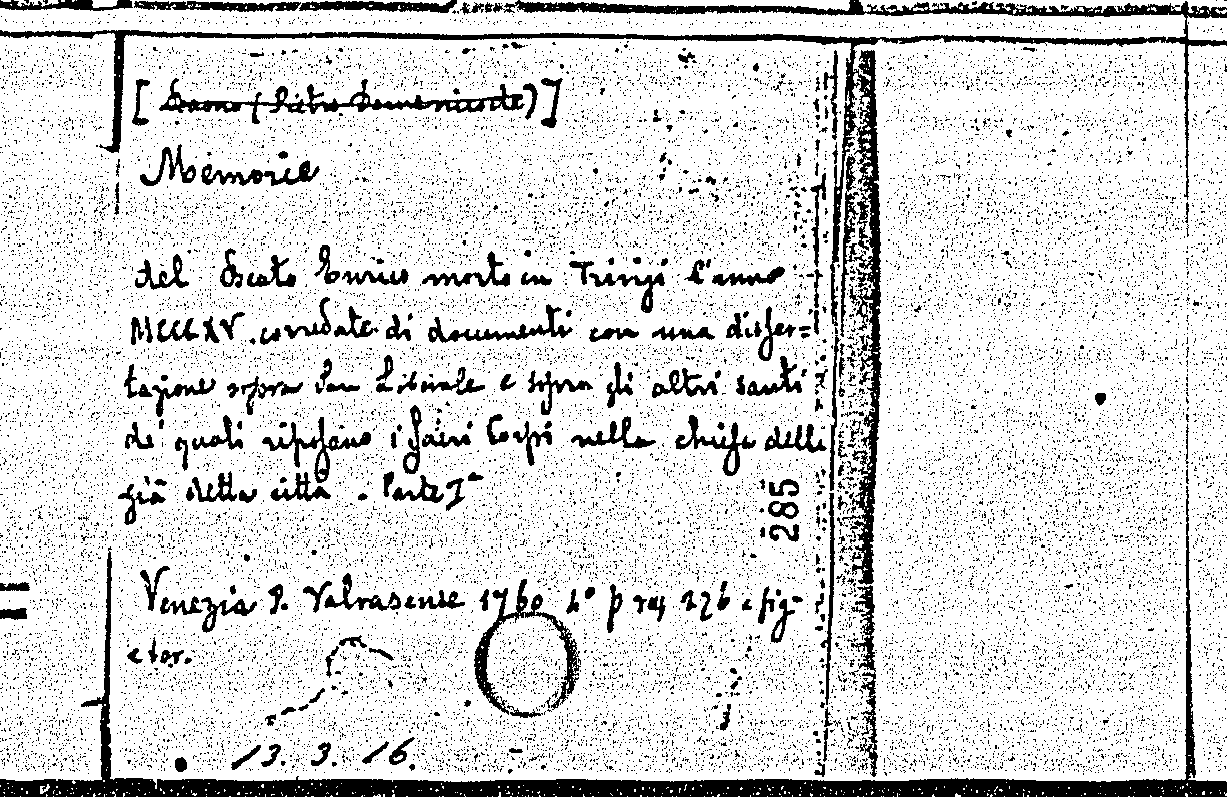 [ (Pietro Domenico) ]
Memorie
del Beato Enrico morto in Trivigi l'anno
MCCCXV. corredate di documenti con una disser=
tazione sopra San Liberale e sopra gli altri santi
de' quali riposano i sacri Corpi nella chiesa della
già detta città. Parte Iª
285
Venezia P. Valvasense 1760 4° p 176 e fig
e tor.
13. 3. 16.